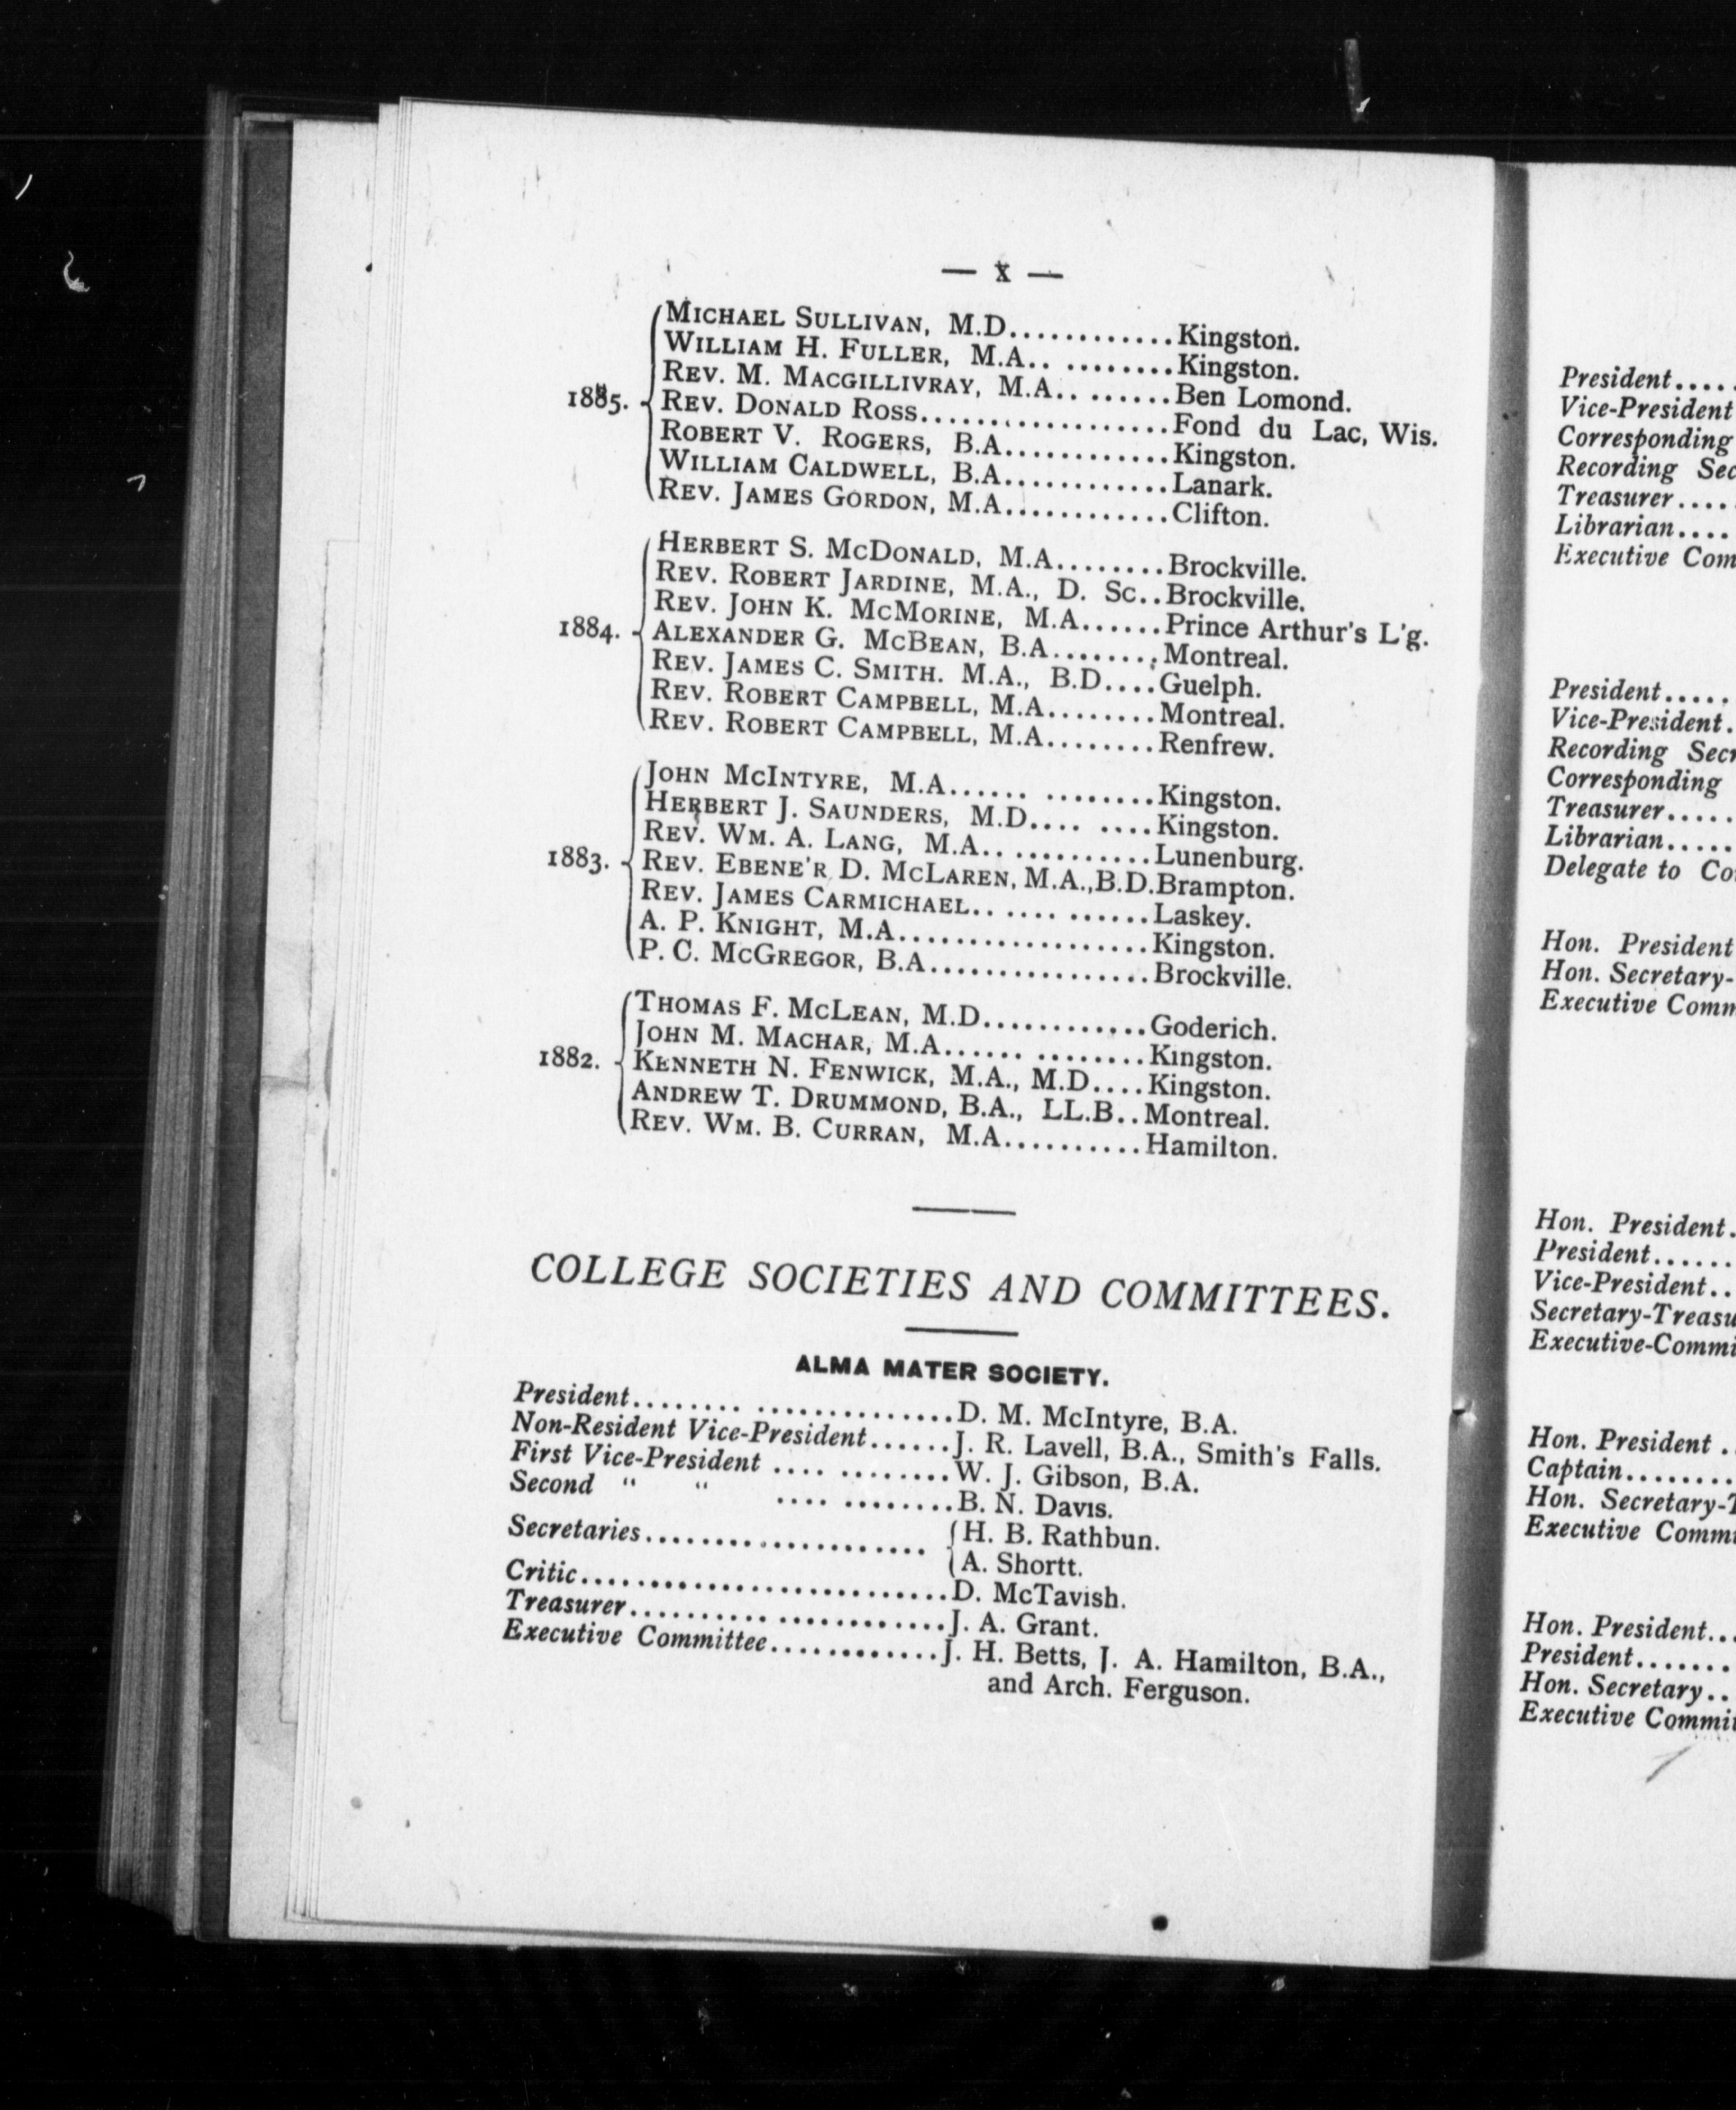 — x —
MICHAEL SULLIVAN, M.D............Kingston.
WILLIAM H. FULLER, M.A.. ........Kingston.
REV. M. MACGILLIVRAY, M.A.. ......Ben Lomond.
1885. REV. DONALD ROSS..................Fond du Lac, Wis.
ROBERT V. ROGERS, B.A............Kingston.
WILLIAM CALDWELL, B.A............Lanark.
REV. JAMES GORDON, M.A............Clifton.
HERBERT S. MCDONALD, M.A........Brockville.
REV. ROBERT JARDINE, M.A., D. SC..Brockville.
REV. JOHN K. MCMORINE, M.A......Prince Arthur's L'g.
1884. ALEXANDER G. MCBEAN, B.A........Montreal.
REV. JAMES C. SMITH. M.A., B.D....Guelph.
REV. ROBERT CAMPBELL, M.A........Montreal.
REV. ROBERT CAMPBELL, M.A........Renfrew.
JOHN MCINTYRE, M.A...... ........Kingston.
HERBERT J. SAUNDERS, M.D.... ....Kingston.
REV. WM. A. LANG, M.A.. ..........Lunenburg.
1883. REV. EBENE'R D. MCLAREN, M.A.,B.D.Brampton.
REV. JAMES CARMICHAEL.. .... ......Laskey.
A. P. KNIGHT, M.A..................Kingston.
P. C. MCGREGOR, B.A................Brockville.
THOMAS F. MCLEAN, M.D............Goderich.
JOHN M. MACHAR, M.A...... ........Kingston.
1882. KENNETH N. FENWICK, M.A., M.D....Kingston.
ANDREW T. DRUMMOND, B.A., LL.B..Montreal.
REV. WM. B. CURRAN, M.A..........Hamilton.
COLLEGE SOCIETIES AND COMMITTEES.
ALMA MATER SOCIETY.
President........ ..............D. M. McIntyre, B.A.
Non-Resident Vice-President......J. R. Lavell, B.A., Smith's Falls.
First Vice-President .... ........W. J. Gibson, B.A.
Second " " .... ........B. N. Davis.
Secretaries.................... H. B. Rathbun.
A. Shortt.
Critic..........................D. McTavish.
Treasurer.......... ............J. A. Grant.
Executive Committee............J. H. Betts, J. A. Hamilton, B.A.,
and Arch. Ferguson.
President....
Vice-President
Corresponding
Recording
Treasurer....
Librarian....
Executive
President.....
Vice-President.
Recording
Corresponding
Treasurer.....
Librarian.....
Delegate to
Hon. President
Hon. Secretary-
Executive
Hon. President.
President......
Vice-President..
Executive-
Hon. President .
Captain........
Hon. Secretary-
Executive
Hon. President...
President.......
Hon. Secretary..
Executive